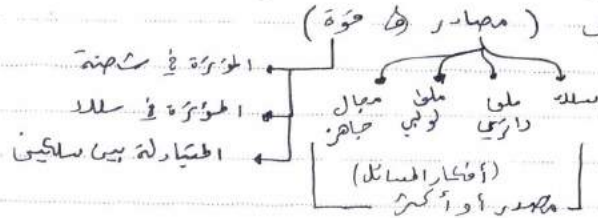 ( مصادر ها قوة )
المؤثرة في شحنة
المؤثرة في سلك
المتبادلة بين سلكين
سلك
ملف دائري
ملف لولبي
مجال جاهز
(أفكار المسائل)
مصدر أو أكثر